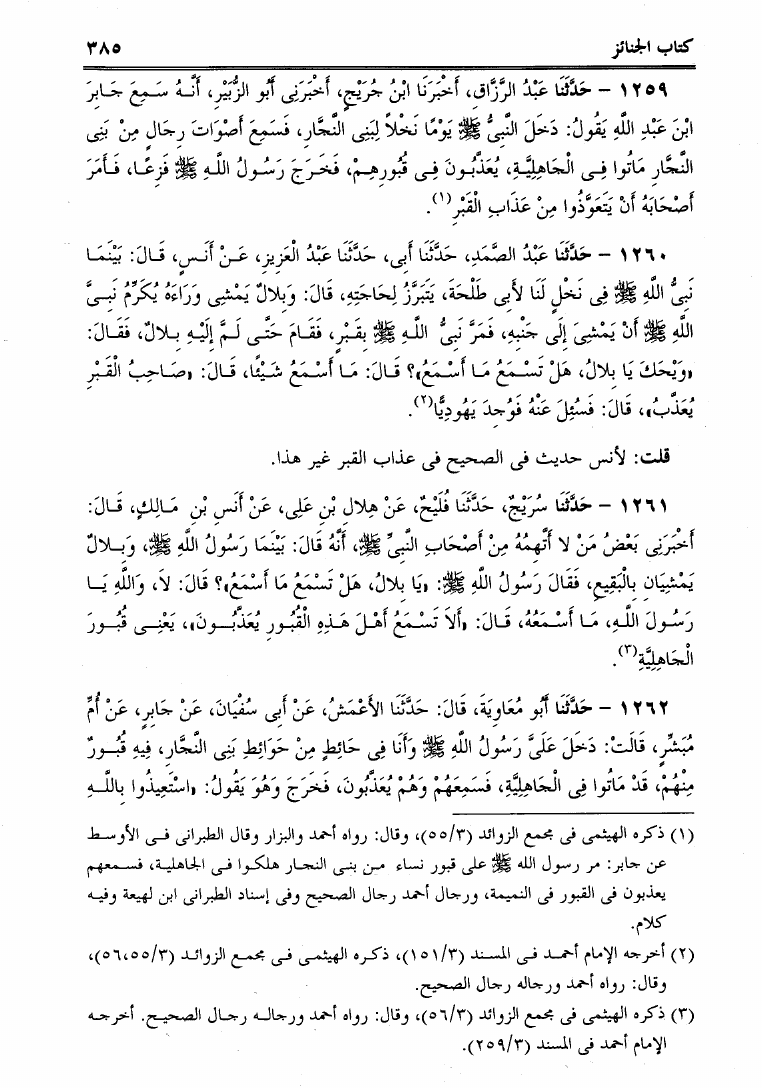 كتاب الجنائز ٣٨٥
١٢٥٩ – حَدَّثَنَا عَبْدُ الرَّزَّاقِ، أَخْبَرَنَا ابْنُ جُرَيْجٍ، أَخْبَرَنِى أَبُو الزُّبَيْرِ، أَنَّهُ سَمِعَ جَابِرَ
ابْنَ عَبْدِ اللَّهِ يَقُولُ: دَخَلَ النَّبِىُّ ﷺ يَوْمًا نَخْلاً لِبَنِى النَّجَّارِ، فَسَمِعَ أَصْوَاتَ رِجَالٍ مِنْ بَنِى
النَّجَّارِ مَاتُوا فِى الْجَاهِلِيَّةِ، يُعَذَّبُونَ فِى قُبُورِهِمْ، فَخَرَجَ رَسُولُ اللَّهِ ﷺ فَزِعًا، فَأَمَرَ
أَصْحَابَهُ أَنْ يَتَعَوَّذُوا مِنْ عَذَابِ الْقَبْرِ(١).
١٢٦٠ – حَدَّثَنَا عَبْدُ الصَّمَدِ، حَدَّثَنَا أَبِى، حَدَّثَنَا عَبْدُ الْعَزِيزِ، عَنْ أَنَسٍ، قَالَ: بَيْنَمَا
نَبِىُّ اللَّهِ ﷺ فِى نَخْلٍ لَنَا لأَبِى طَلْحَةَ، يَتَبَرَّزُ لِحَاجَتِهِ، قَالَ: وَبِلالٌ يَمْشِى وَرَاءَهُ يُكَرِّمُ نَبِىَّ
اللَّهِ ﷺ أَنْ يَمْشِىَ إِلَى جَنْبِهِ، فَمَرَّ نَبِىُّ اللَّهِ ﷺ بِقَبْرٍ، فَقَامَ حَتَّى لَمَّ إِلَيْهِ بِلالٌ، فَقَالَ:
«وَيْحَكَ يَا بِلالُ، هَلْ تَسْمَعُ مَا أَسْمَعُ»؟ قَالَ: مَا أَسْمَعُ شَيْئًا، قَالَ: «صَاحِبُ الْقَبْرِ
يُعَذَّبُ»، قَالَ: فَسُئِلَ عَنْهُ فَوُجِدَ يَهُودِيًّا(٢).
قلت: لأنس حديث فى الصحيح فى عذاب القبر غير هذا.
١٢٦١ – حَدَّثَنَا سُرَيْجٌ، حَدَّثَنَا فُلَيْحٌ، عَنْ هِلالِ بْنِ عَلِى، عَنْ أَنَسِ بْنِ مَالِكٍ، قَالَ:
أَخْبَرَنِى بَعْضُ مَنْ لا أَتَّهِمُهُ مِنْ أَصْحَابِ النَّبِىِّ ﷺ، أَنَّهُ قَالَ: بَيْنَمَا رَسُولُ اللَّهِ ﷺ، وَبِلالٌ
يَمْشِيَانِ بِالْبَقِيعِ، فَقَالَ رَسُولُ اللَّهِ ﷺ: «يَا بِلالُ، هَلْ تَسْمَعُ مَا أَسْمَعُ»؟ قَالَ: لاَ، وَاللَّهِ يَا
رَسُولَ اللَّهِ، مَا أَسْمَعُهُ، قَالَ: «أَلاَ تَسْمَعُ أَهْلَ هَذِهِ الْقُبُورِ يُعَذَّبُونَ»، يَعْنِى قُبُورَ
الْجَاهِلِيَّةِ(٣).
١٢٦٢ – حَدَّثَنَا أَبُو مُعَاوِيَةَ، قَالَ: حَدَّثَنَا الأَعْمَشُ، عَنْ أَبِى سُفْيَانَ، عَنْ جَابِرٍ، عَنْ أُمِّ
مُبَشِّرٍ، قَالَتْ: دَخَلَ عَلَىَّ رَسُولُ اللَّهِ ﷺ وَأَنَا فِى حَائِطٍ مِنْ حَوَائِطِ بَنِى النَّجَّارِ، فِيهِ قُبُورٌ
مِنْهُمْ، قَدْ مَاتُوا فِى الْجَاهِلِيَّةِ، فَسَمِعَهُمْ وَهُمْ يُعَذَّبُونَ، فَخَرَجَ وَهُوَ يَقُولُ: «اسْتَعِيذُوا بِاللَّهِ
(١) ذكره الهيثمى فى مجمع الزوائد (٥٥/٣)، وقال: رواه أحمد والبزار وقال الطبرانى فى الأوسط
عن جابر: مر رسول الله ﷺ على قبور نساء من بنى النجار هلكوا فى الجاهلية، فسمعهم
يعذبون فى القبور فى النميمة، ورجال أحمد رجال الصحيح وفى إسناد الطبرانى ابن لهيعة وفيه
كلام.
(٢) أخرجه الإمام أحمد فى المسند (١٥١/٣)، ذكره الهيثمى فى مجمع الزوائد (٥٦،٥٥/٣)،
وقال: رواه أحمد ورجاله رجال الصحيح.
(٣) ذكره الهيثمى فى مجمع الزوائد (٥٦/٣)، وقال: رواه أحمد ورجاله رجال الصحيح. أخرجه
الإمام أحمد فى المسند (٢٥٩/٣).